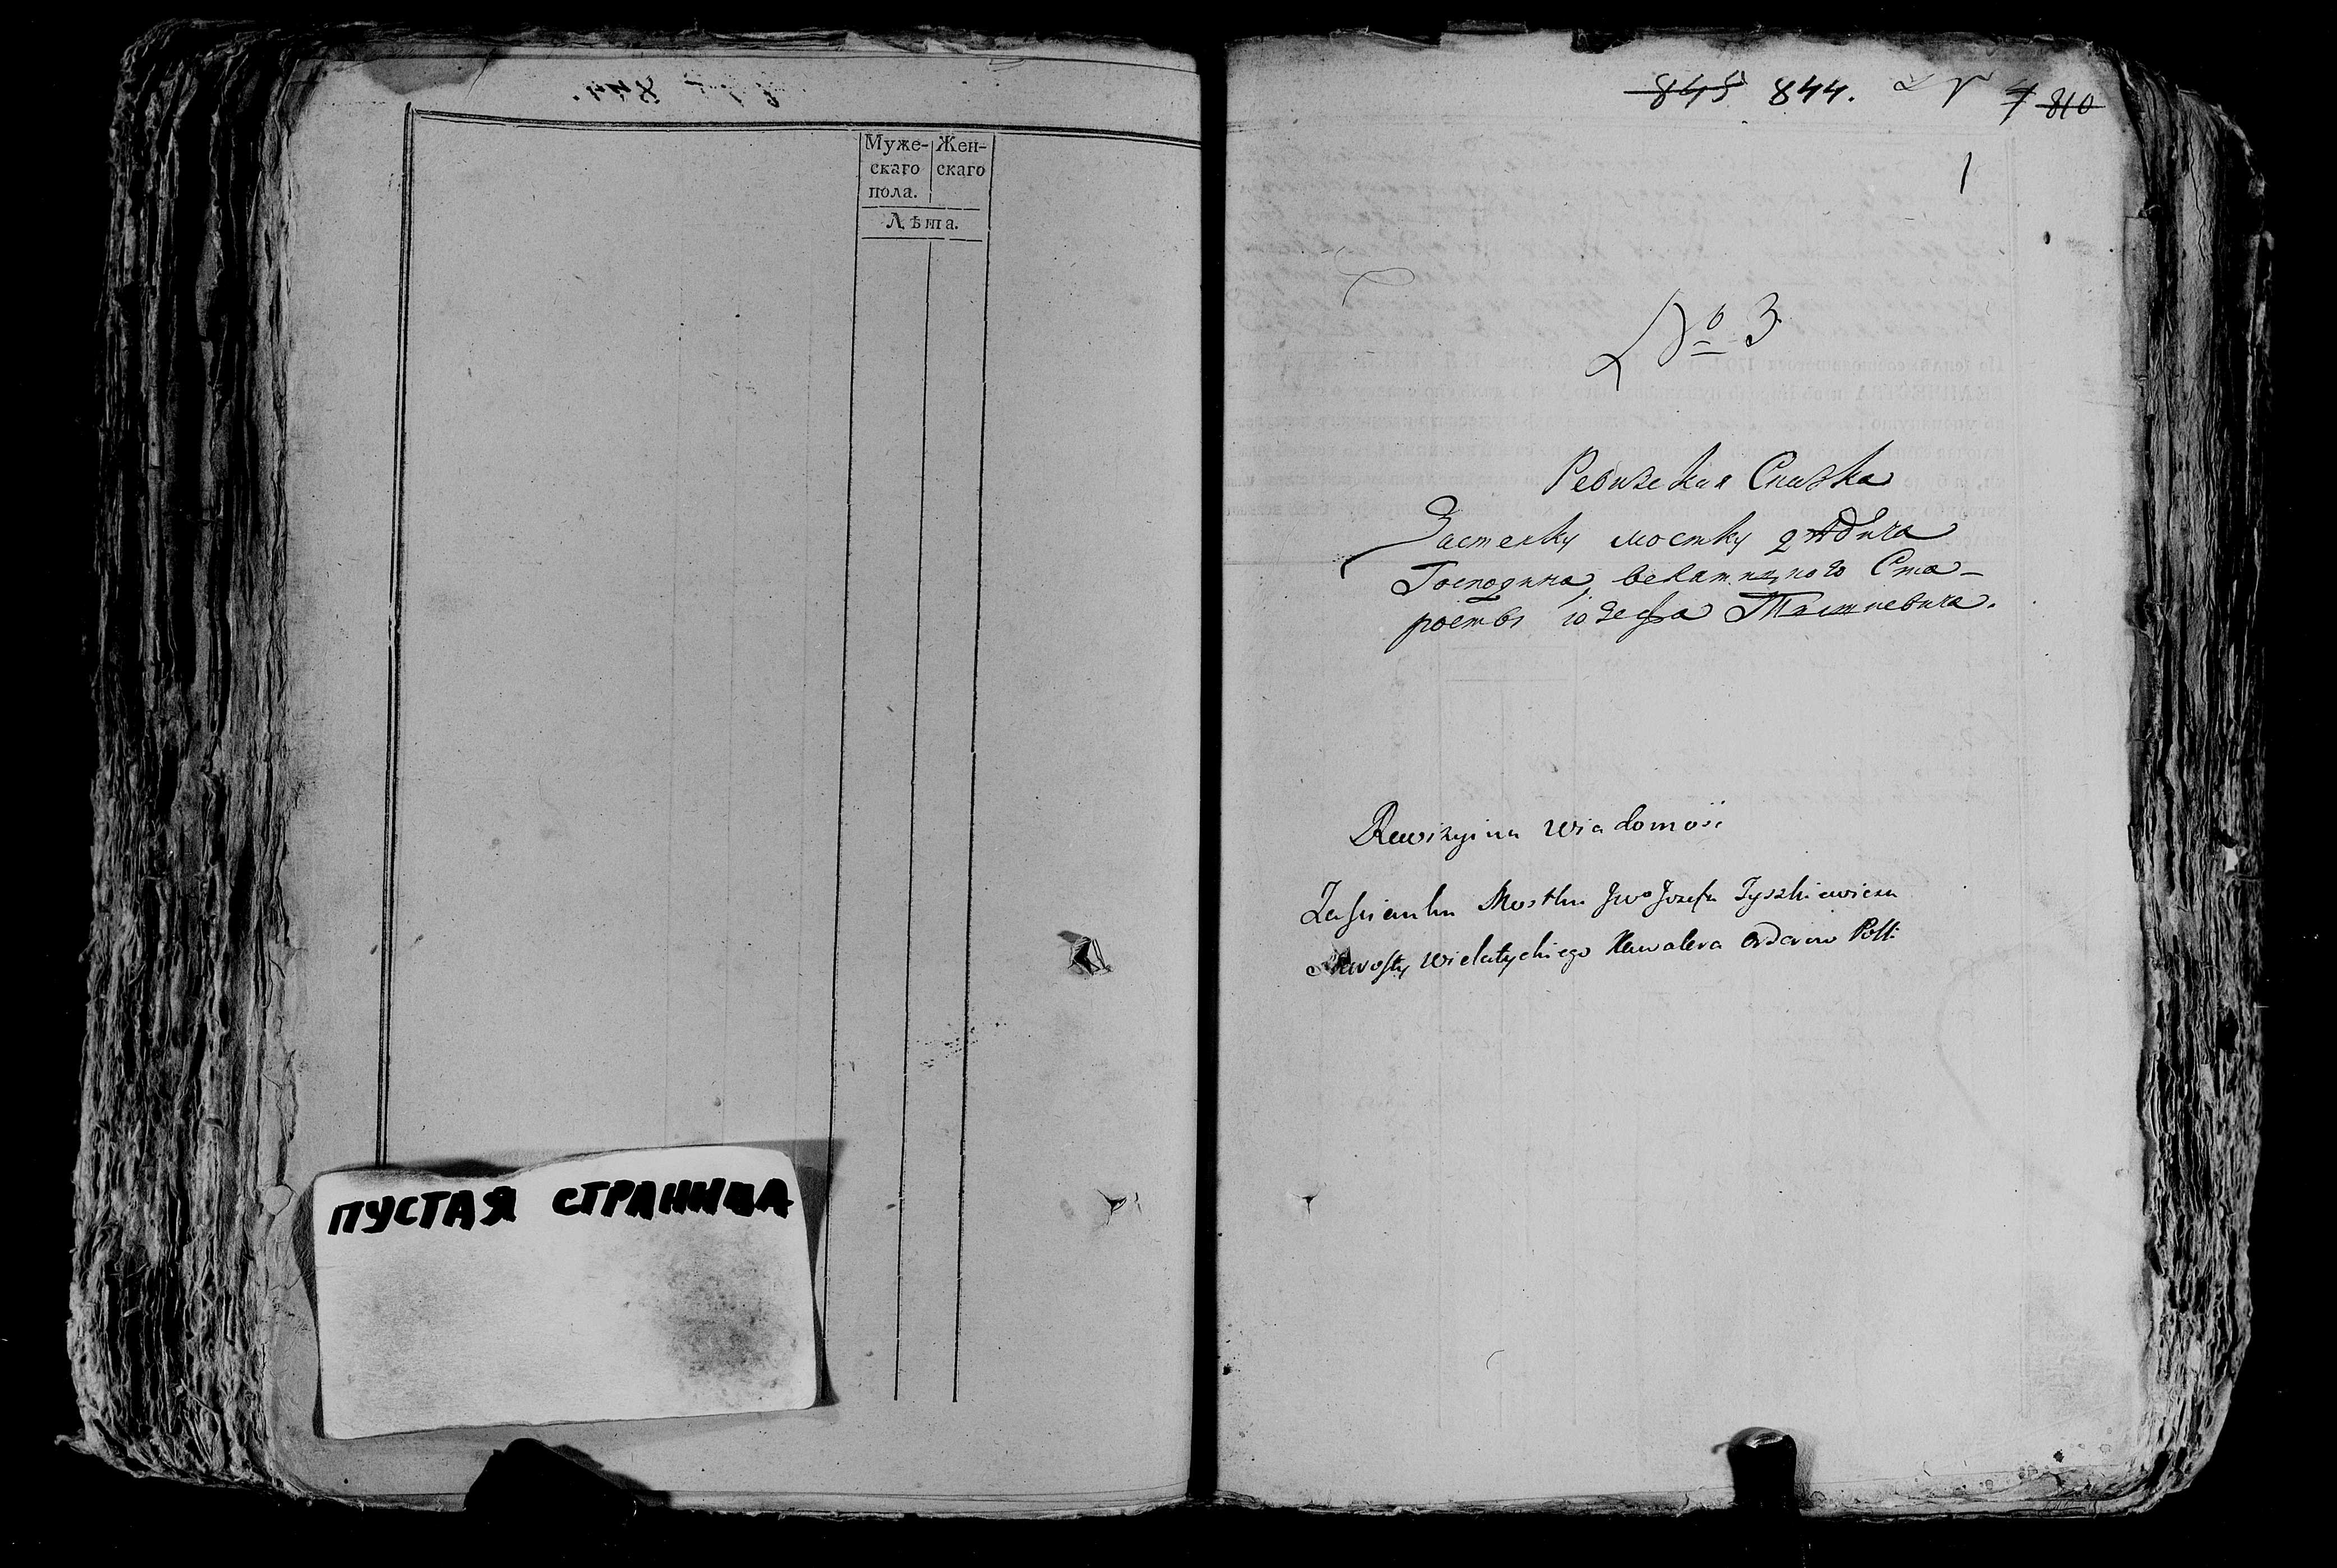 Муже- Жен-
скаго скаго
пола.
Лѣта.
ПУСТАЯ СТРАНИЦА
845 844. 4 810
1
№ 3
Ревизская Сказка
Застенку мостку дѣдича
Господина велатицкого Ста-
росты іозефа Тышкевича.
Rewizyina Wiadomość
Zaścianku Mostku Jwo Jozefa Tyszkiewicza
Starosty Wielatyckiego Kawalera Orderow Polk: